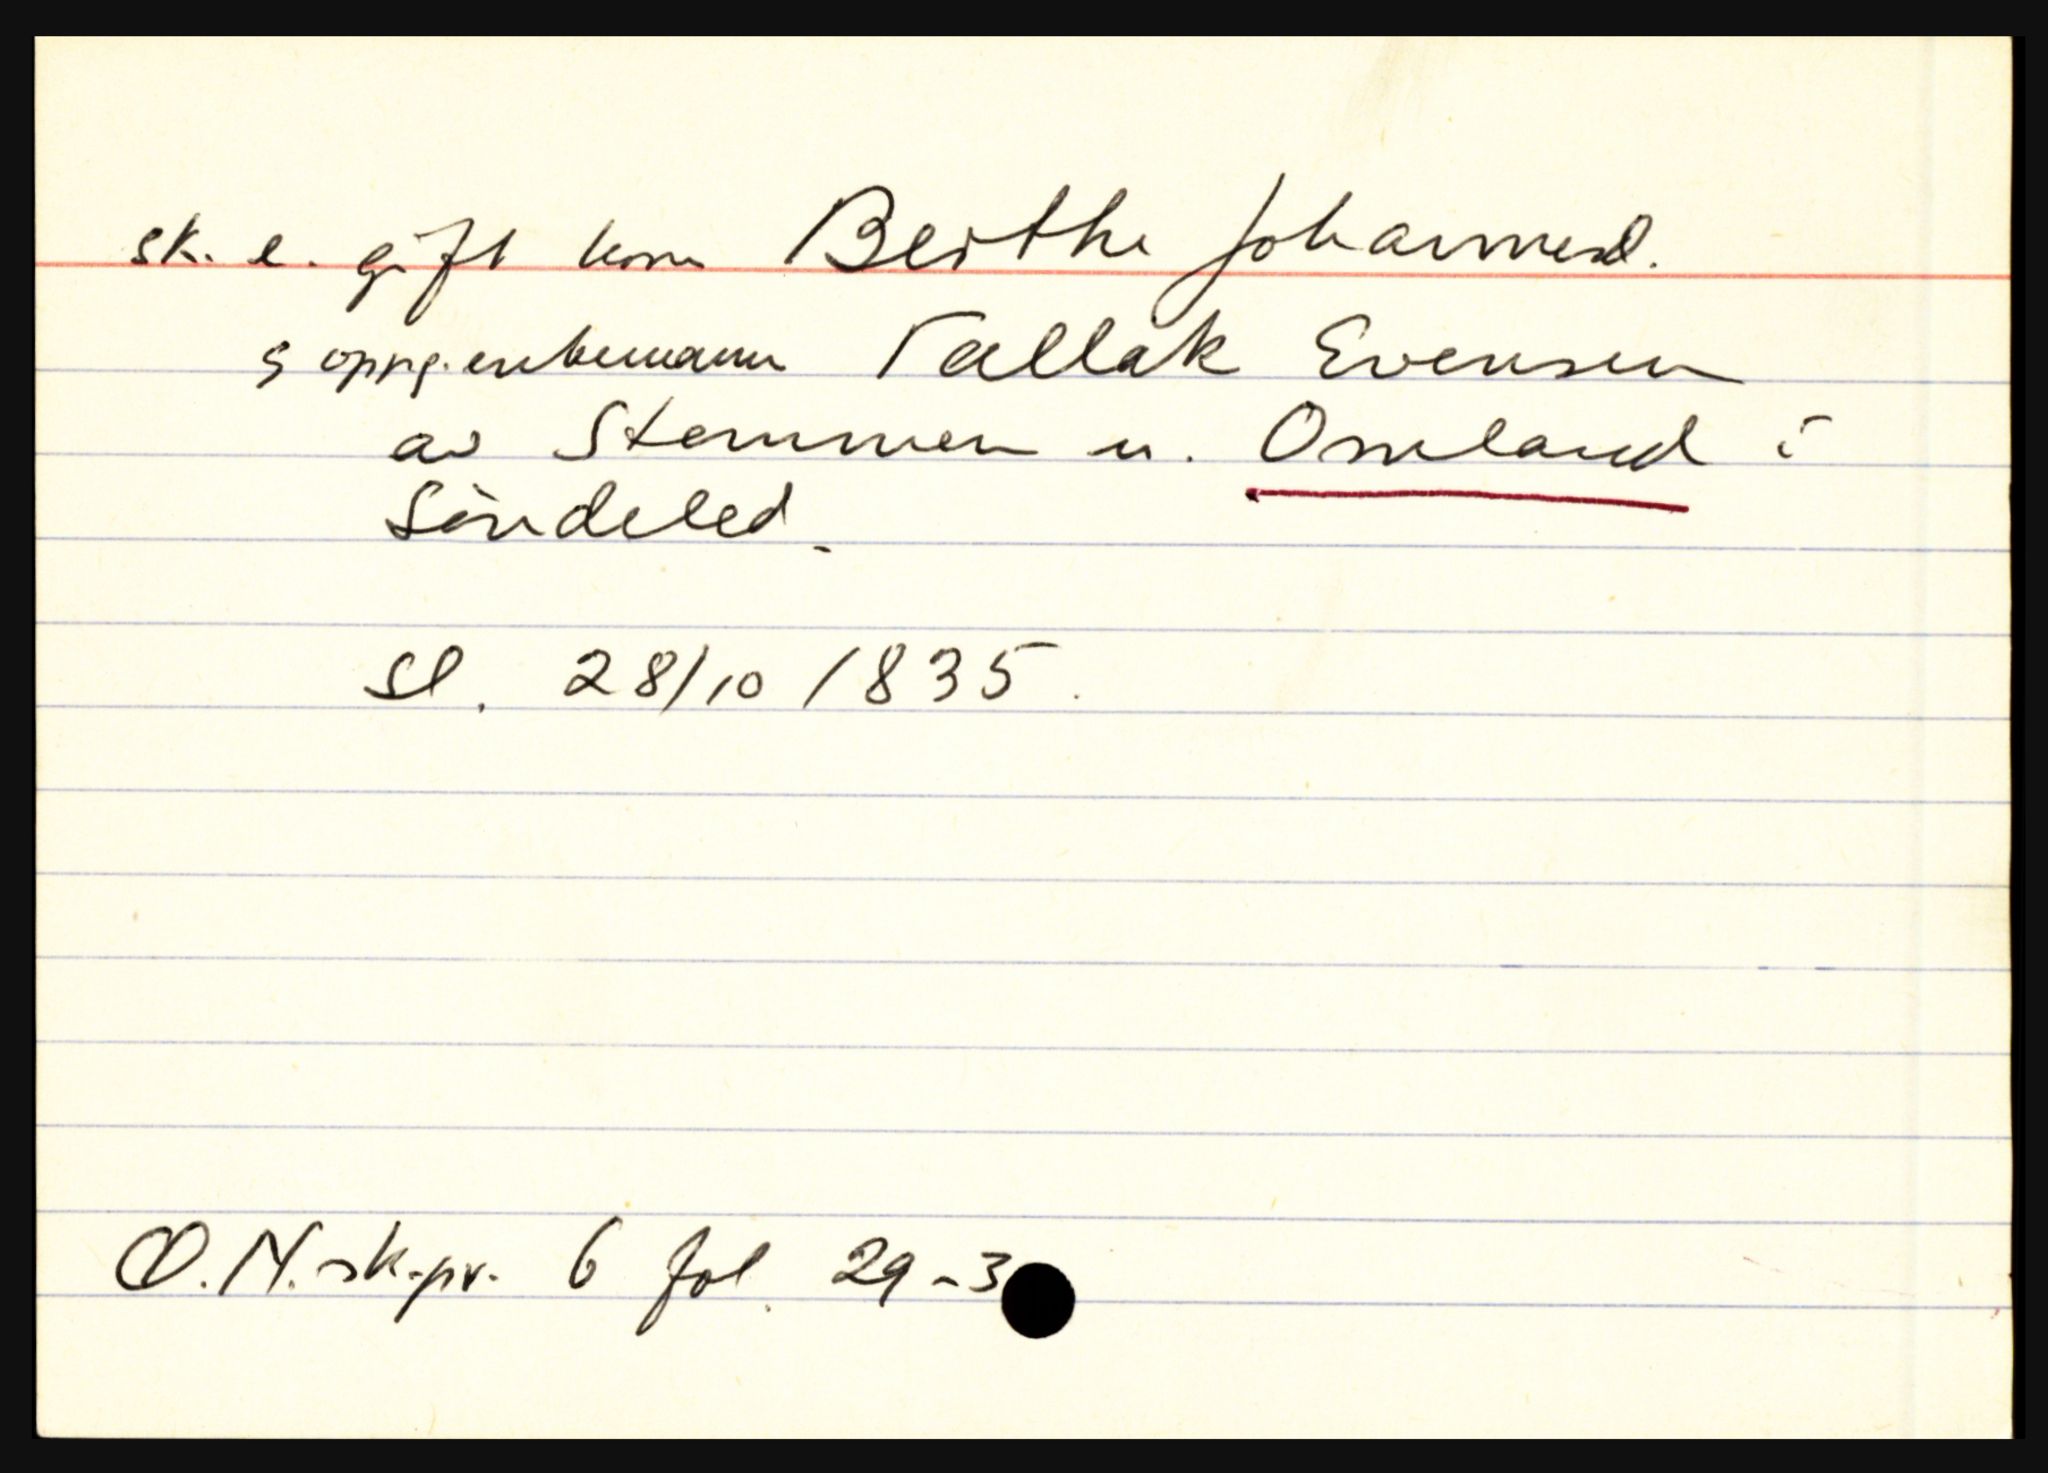 sk. e. gift kone Berthe Johannesd.
g oppg. enkemann Tallak Evensen
av Stemmen u. Omland i
Söndeled.
Sl. 28/10 1835.
Ø.N.sk.pr. 6 fol. 29-3